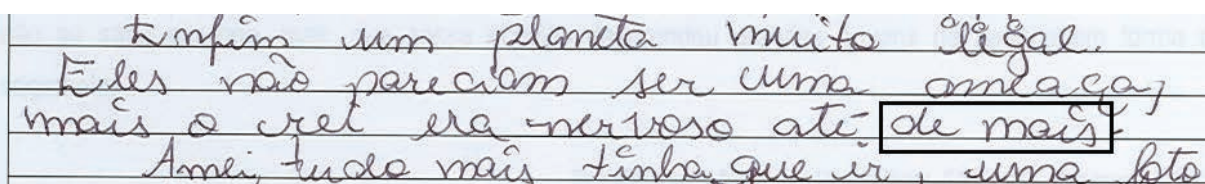 Enfim um planeta muito legal.
Eles não pareciam ser uma ameaça,
mais o rei era nervoso até de mais.
Amei, tudo mais tinha que ir, uma foto